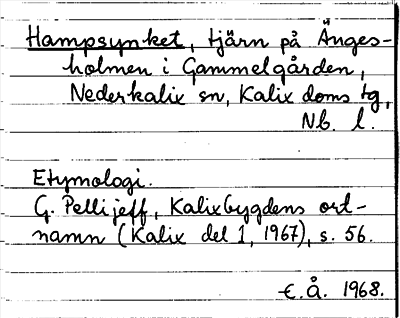 Hampsynket, tjärn på Änges-
holmen i Gammelgården,
Nederkalix sn, Kalix doms tg,
Nb. l.
Etymologi.
G. Pellijeff, Kalixbygdens ort-
namn (Kalix del 1, 1967), s. 56.
E.Å. 1968.